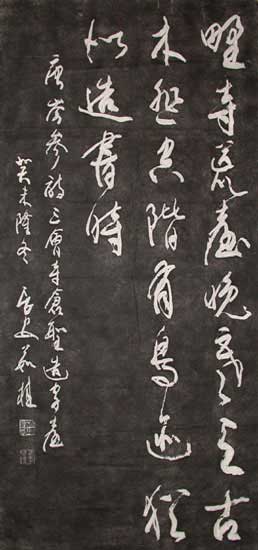 野寺荒臺晚寒天古
木悲空階有鳥迹猶
似造書時
唐岑參詩三會寺倉聖造字臺
癸未隆冬 長安茹桂